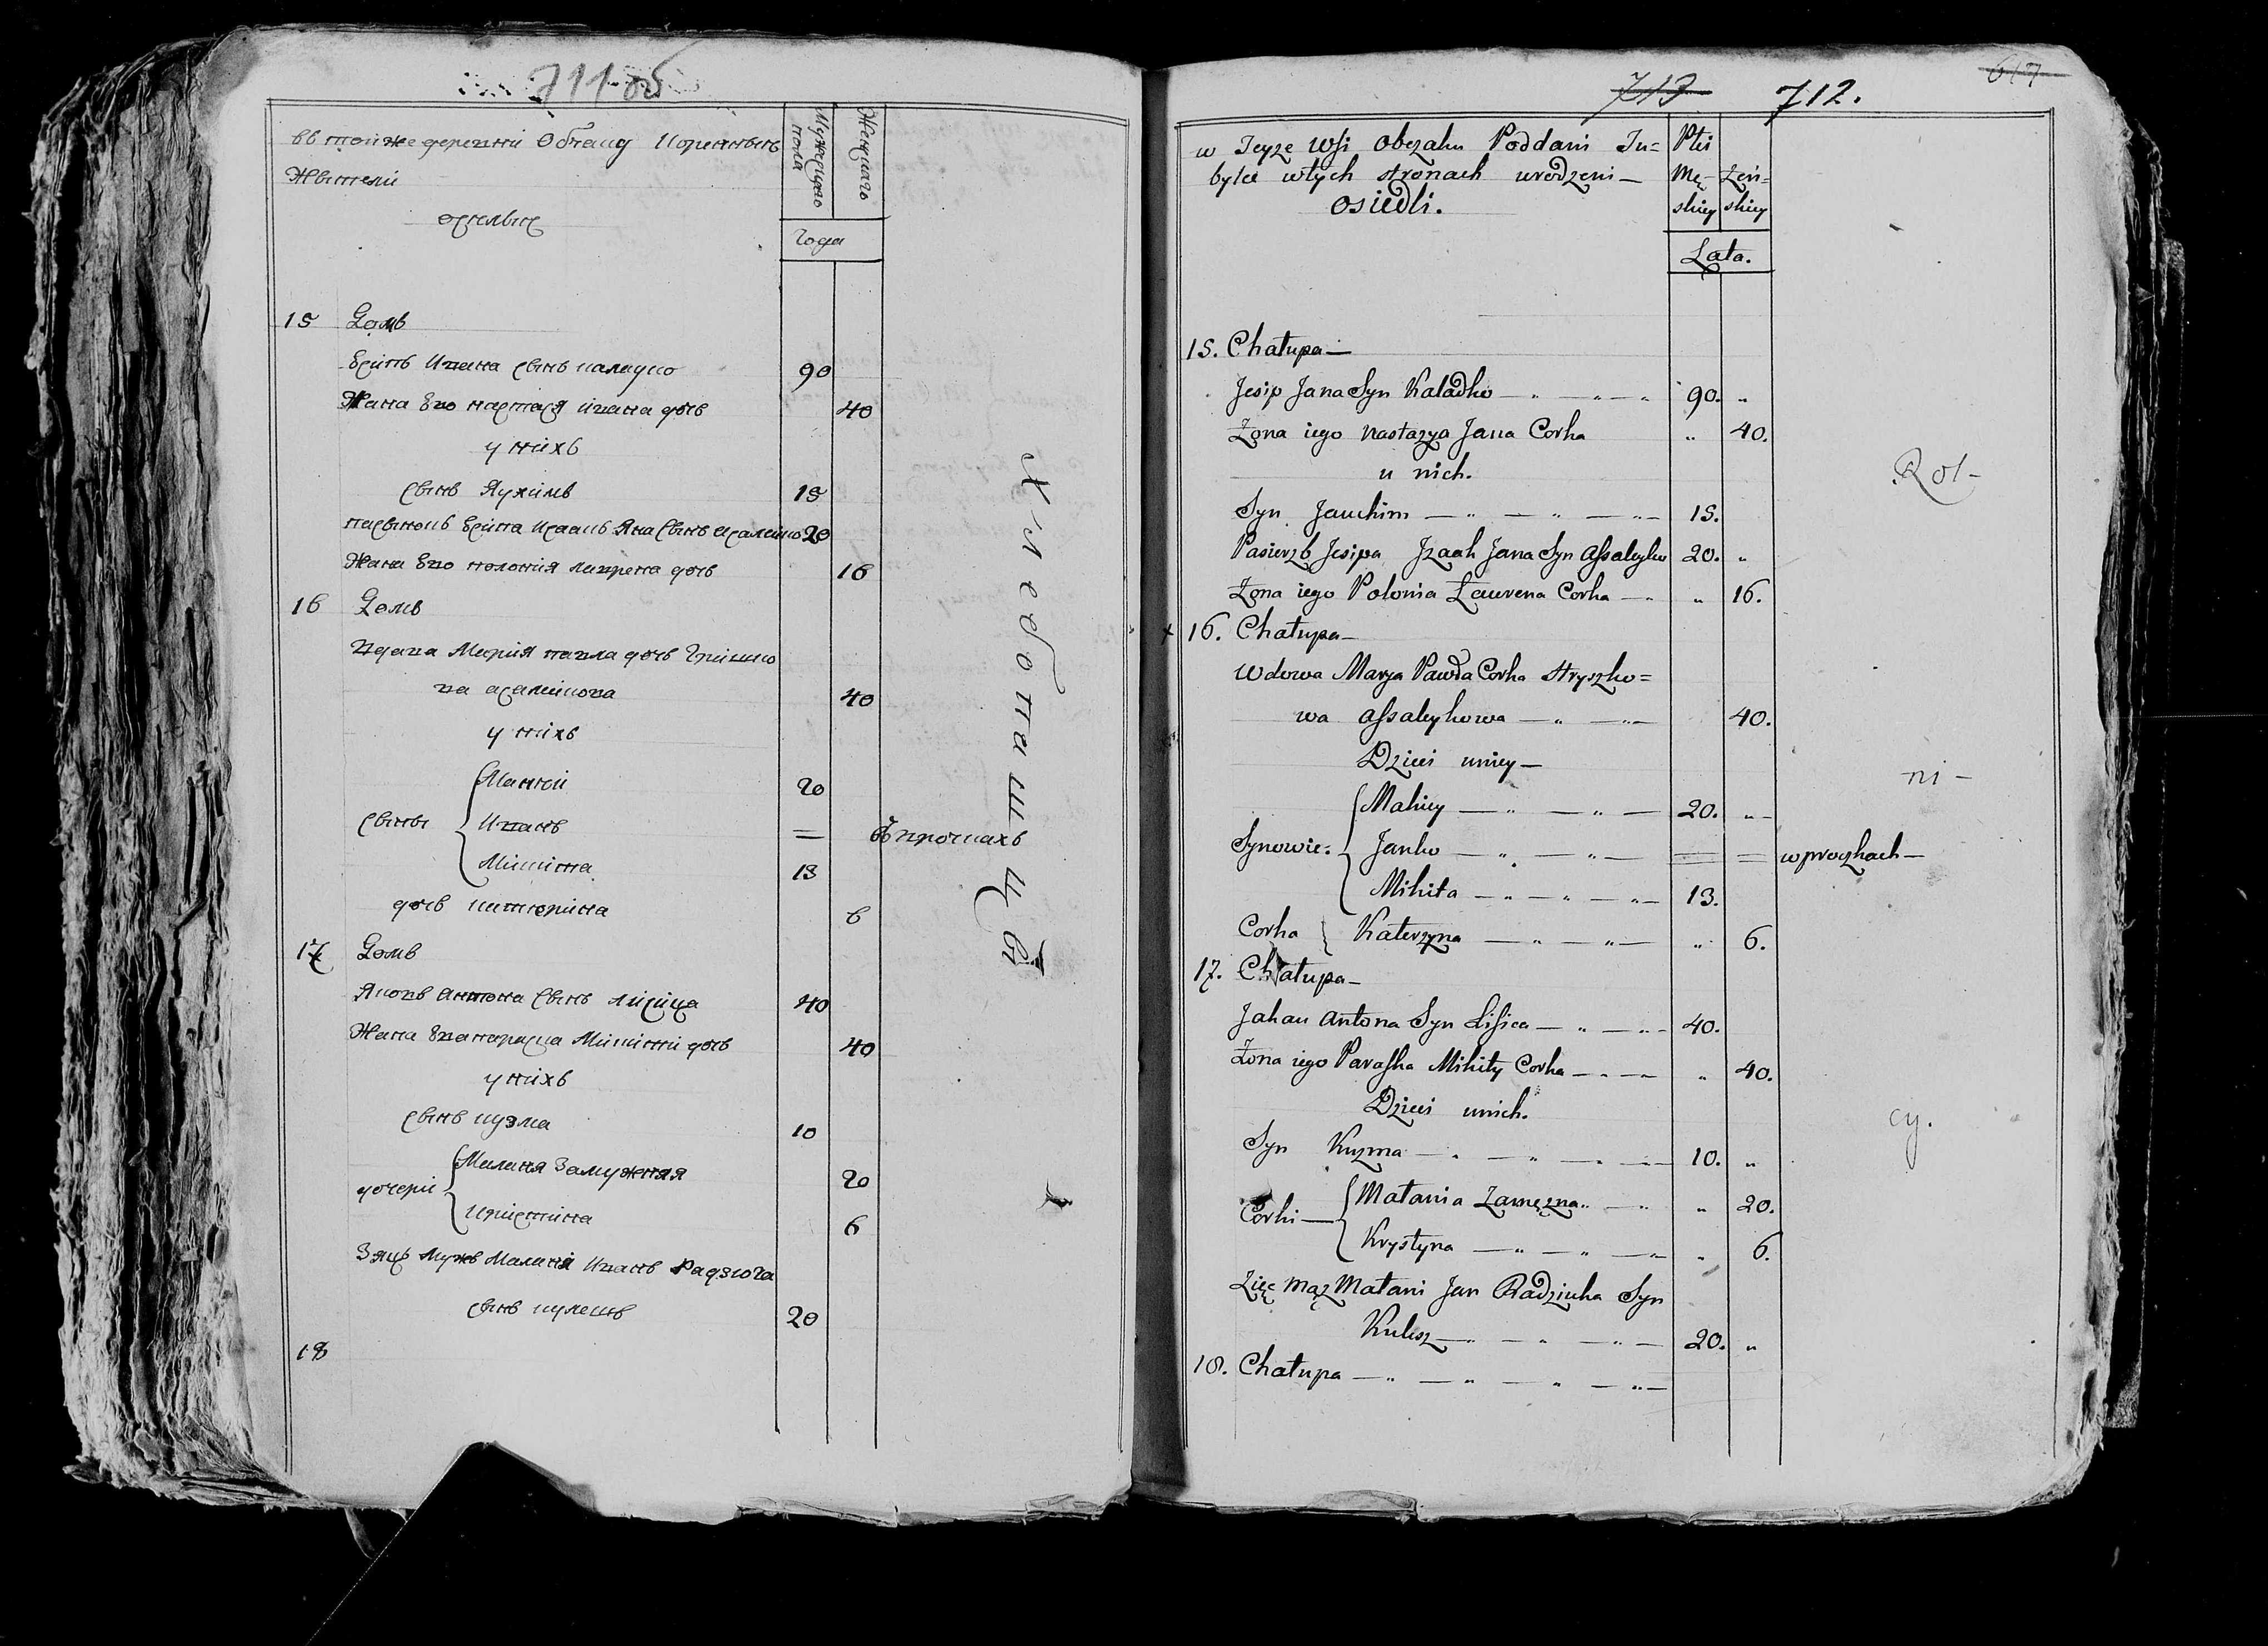 711 об
въ тойже деревни Обчаку Коренныи
Жители
оселыи
Мужескаго пола
Женскаго
Года
15 Домъ
Есипъ Ивана сынъ каладко 90
Жена Его настася ивана дочь 40
у нихъ
сынъ Яухимъ 15
пасынокъ Есипа Исаакъ Яна сынъ асалейко 20
Жена Его полонія лаврена дочь 16
16 Домъ
Вдава Марія павла дочь Гришко
ва асалейкова 40
у нихъ
Макей 20
сыны Иванъ = В прочкахъ
Микита 13
дочь катерина 6
17 Домъ
Яковъ антона сынъ лисица 40
Жена Его параска Микити дочь 40
у нихъ
сынъ кузма 10
Маланя Замужняя 20
дочери
криштина 6
Зяць Мужъ Малани Иванъ Радзюга
сынъ кулешъ 20
18
Хлебопашцы
713 712. 617
w Teyże Wsi Obczaku Poddani Tu= Płci
bylce w tych stronach urodzeni — Mę- Żeń=
osiedli. skiey skiey
Lata.
15. Chałupa —
Jesip Jana Syn Kaładko 90. „
Żona iego Nastazya Jana Corka „ 40.
u nich.
Syn Jauchim 15.
Pasierzb Jesipa Jzaak Jana Syn Assaleyko 20. „
Żona iego Polonia Ławrena Corka „ 16.
x 16. Chałupa —
Wdowa Marya Pawła Corka Hryszko=
wa Assaleykowa 40.
Dzieci u niey —
Makiey 20. „
Synowie: Janko = = w proczkach —
Mikita 13.
Corka Katerzyna „ 6.
17. Chałupa —
Jakau Antona Syn Lisica 40.
Żona iego Paraska Mikity Corka „ 40.
Dzieci u nich.
Syn Kuzma 10. „
Małania Zamężna „ 20.
Corki —
Krystyna „ 6.
Zięć mąż Małani Jan Radziuka Syn
Kulesz 20. „
18. Chałupa
Rol-
ni -
cy.